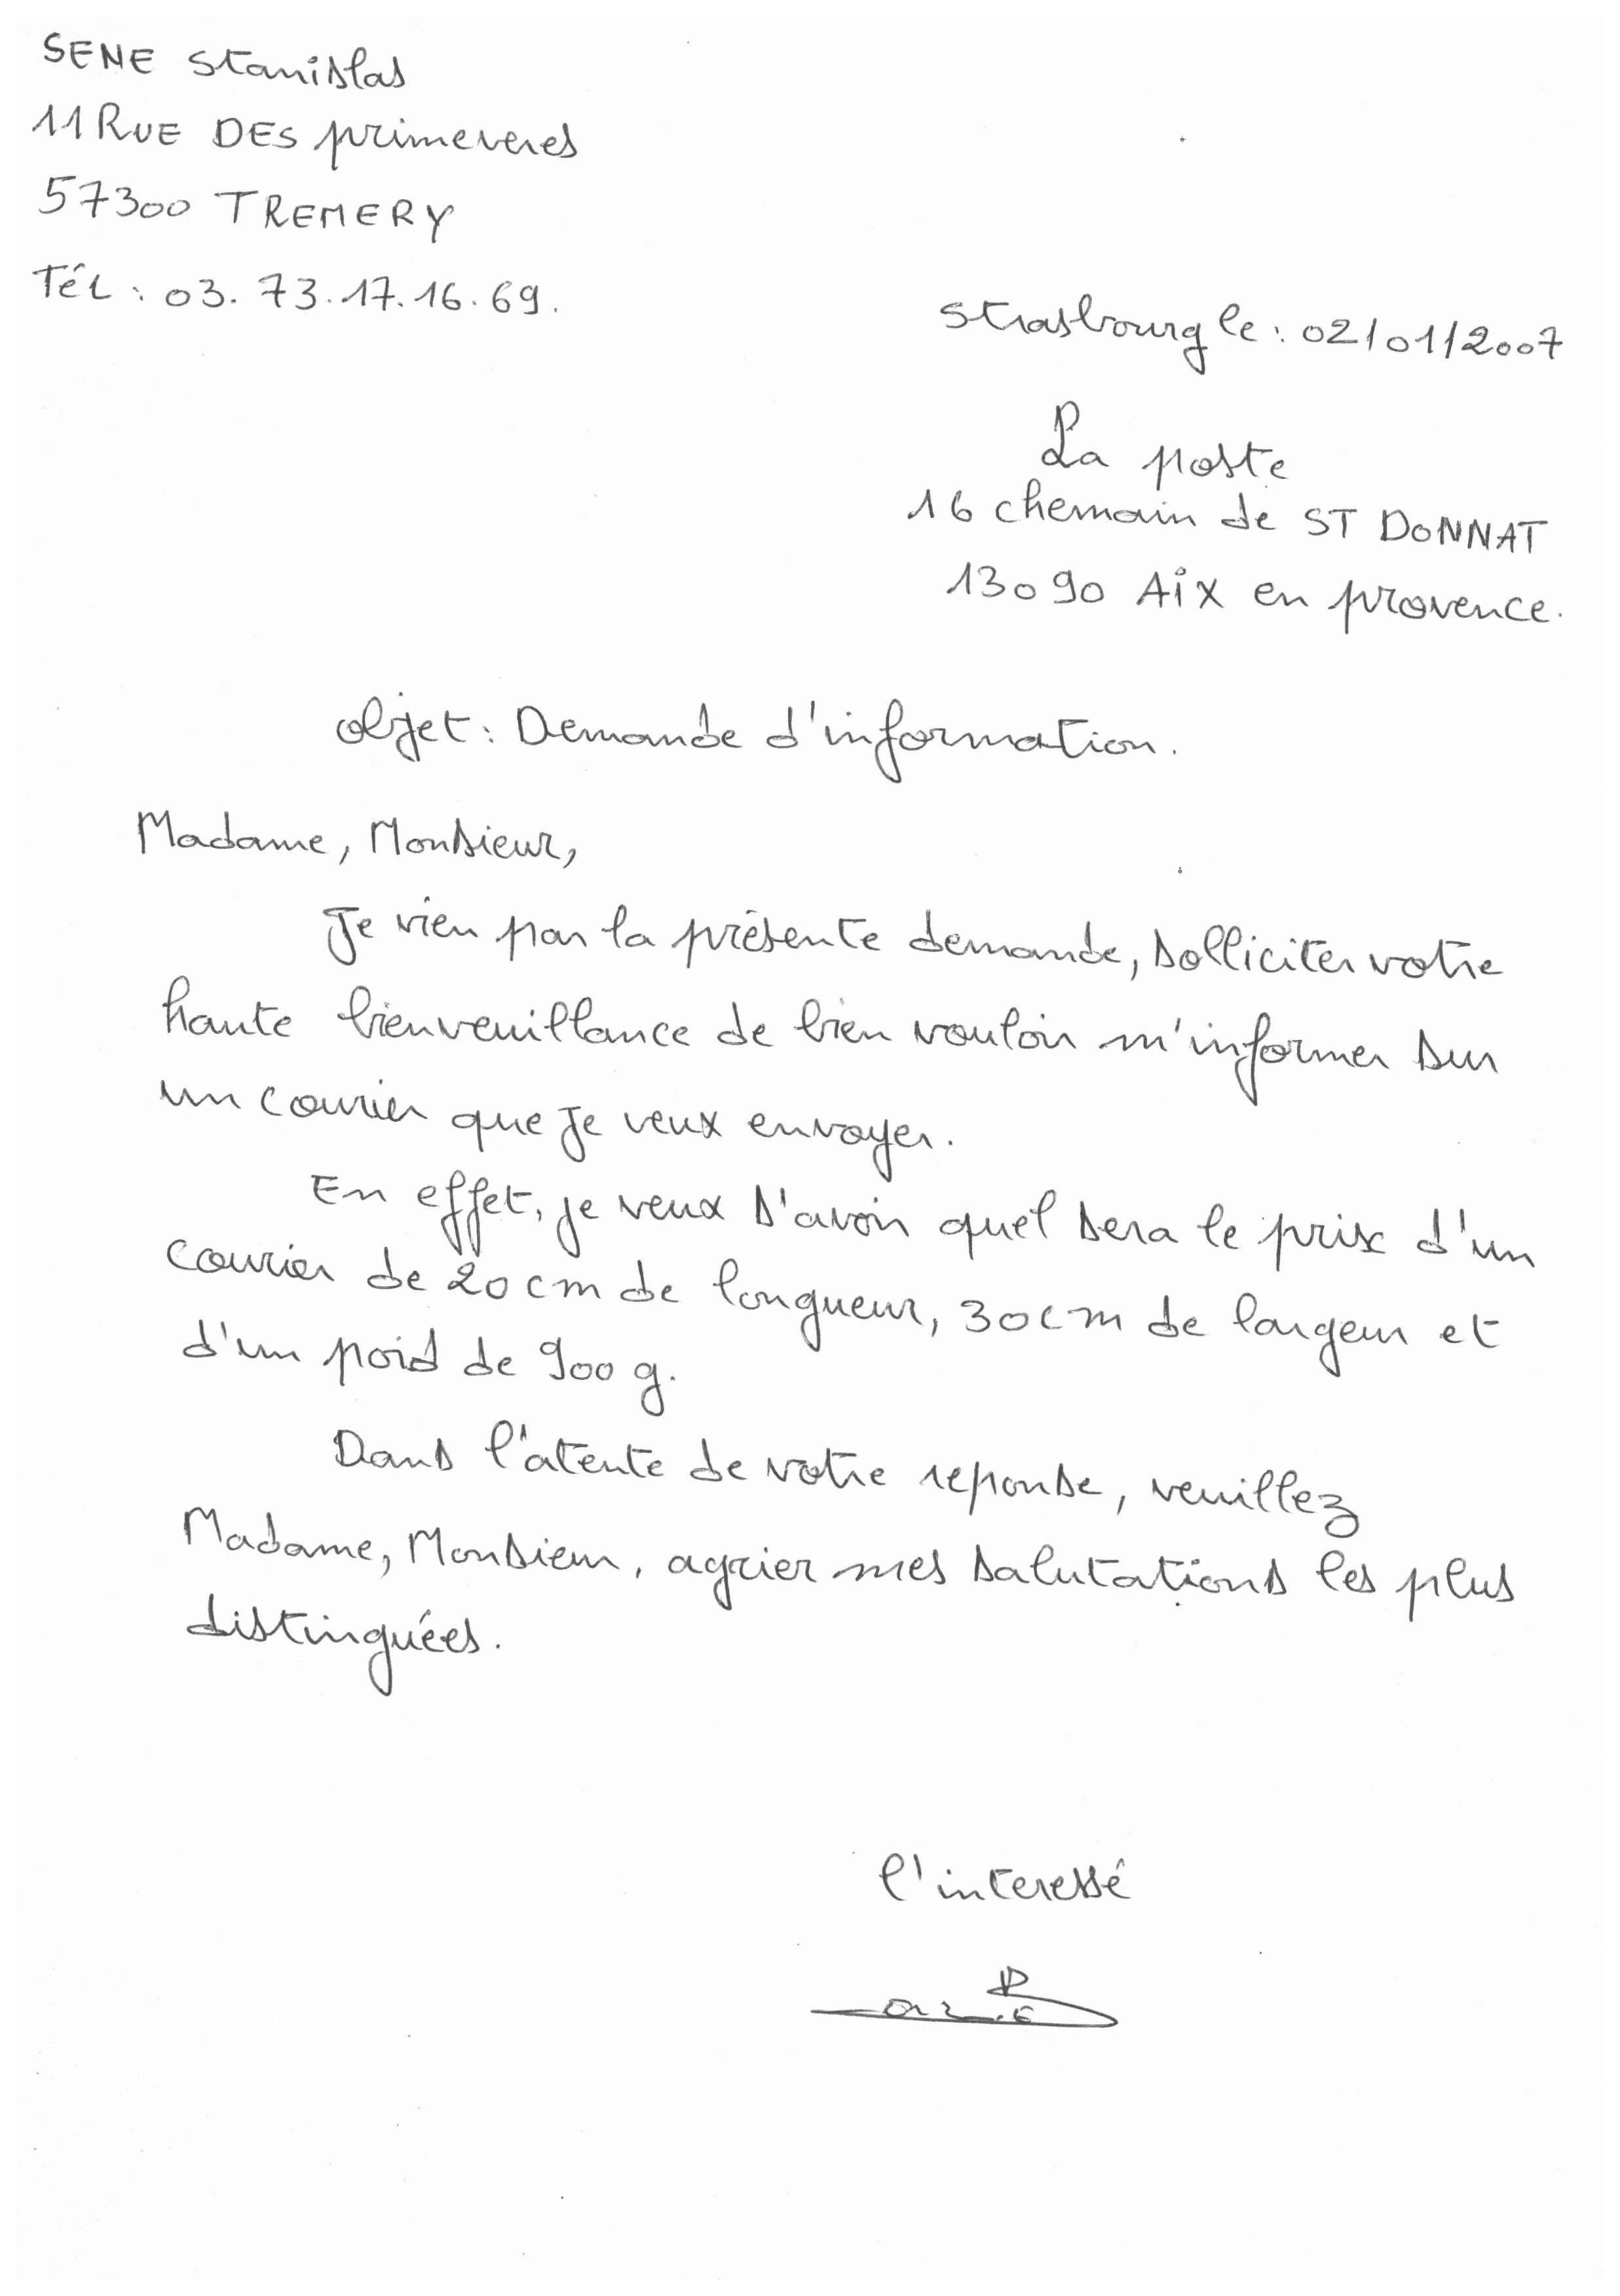 SENE Stanislas
11 RUE DES primeveres
57300 TREMERY
Tél : 03. 73. 17. 16. 69.
Strasbourg le : 02/01/2007
La poste
16 chemain de ST DONNAT
13090 AiX en provence.
objet : Demande d'information.
Madame, Monsieur,
Je vien par la présente demande, solliciter votre
haute bienveuillance de bien vouloir m'informer sur
un courier que je veux envoyer.
En effet, je veux s'avoir quel sera le prix d'un
courier de 20 cm de longueur, 30 cm de largeur et
d'un poid de 900 g.
Dans l'atente de votre reponse, veuillez
Madame, Monsieur, agrier mes salutations les plus
distinguées.
l'interessé